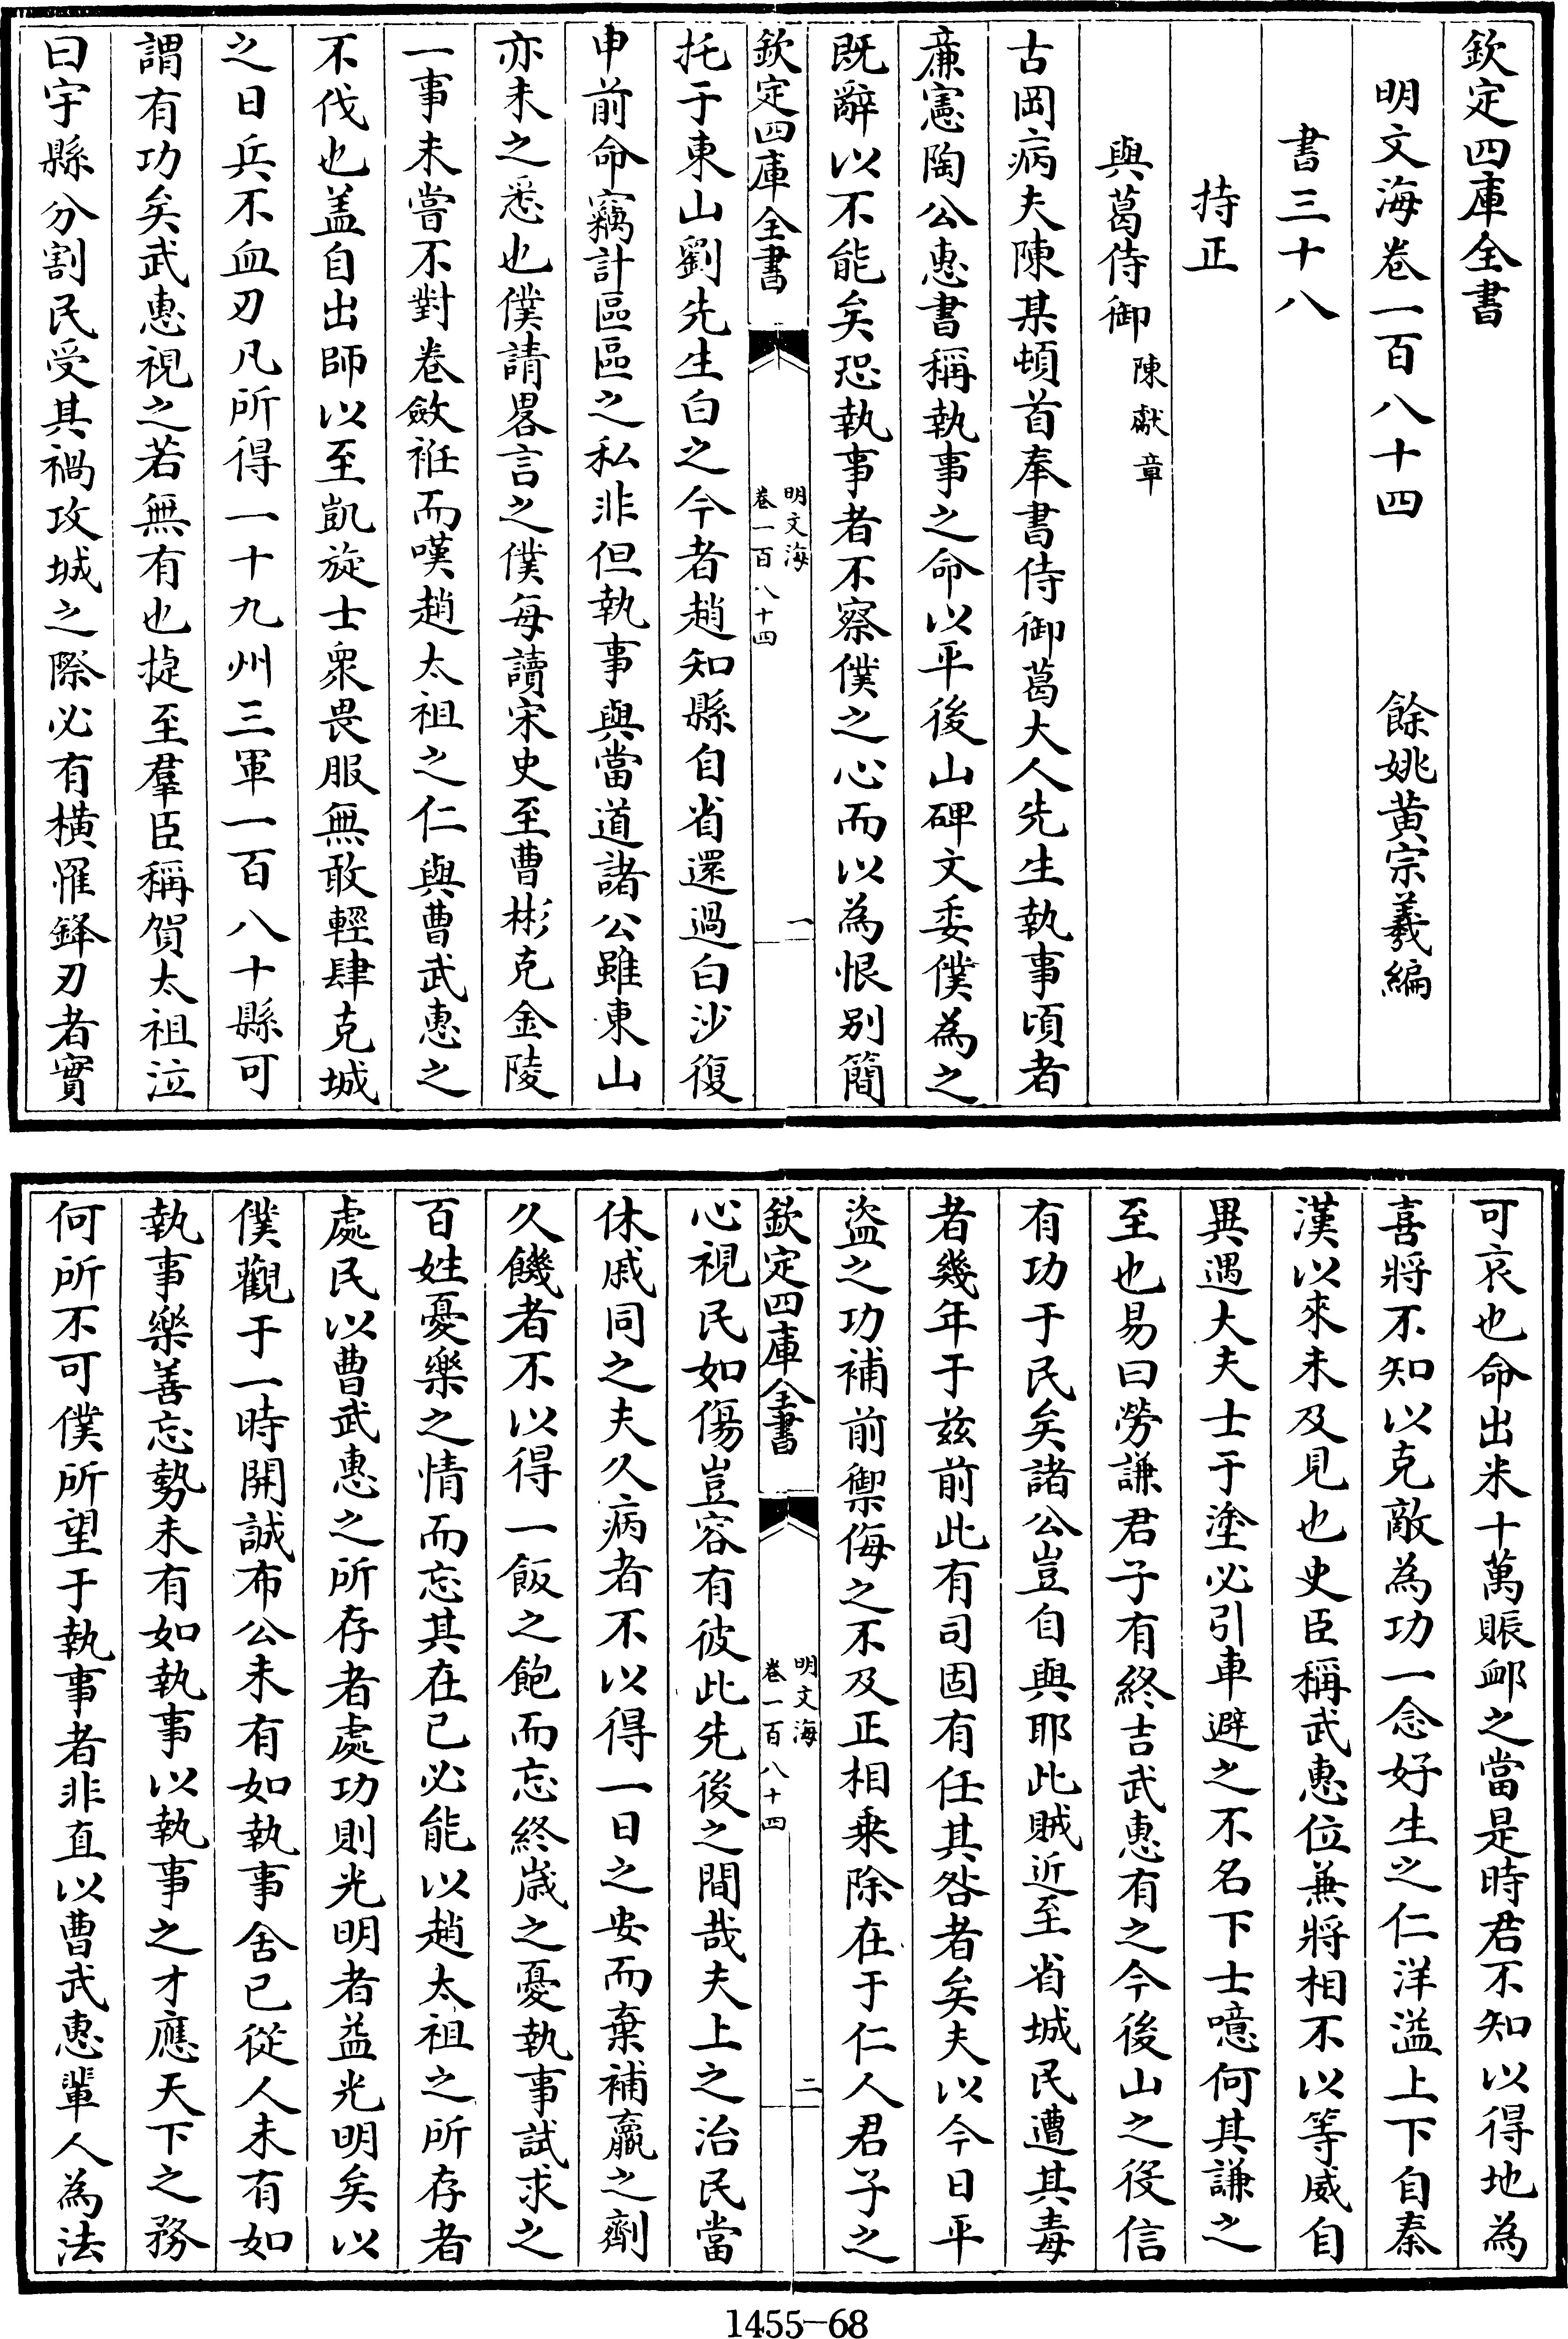 欽定四庫全書
明文海卷一百八十四　餘姚黄宗羲編
書三十八
持正
與葛侍御陳獻章
古岡病夫陳某頓首奉書侍御葛大人先生執事頃者
亷憲陶公惠書稱執事之命以平後山碑文委僕為之
既辭以不能矣恐執事者不察僕之心而以為恨别簡
欽定四庫全書
明文海
卷一百八十四
一
托于東山劉先生白之今者趙知縣自省還過白沙復
申前命竊計區區之私非但執事與當道諸公雖東山
亦未之悉也僕請畧言之僕每讀宋史至曹彬克金陵
一事未嘗不對卷斂袵而嘆趙太祖之仁與曹武惠之
不伐也盖自出師以至凱旋士衆畏服無敢輕肆克城
之日兵不血刃凡所得一十九州三軍一百八十縣可
謂有功矣武惠視之若無有也捷至羣臣稱賀太祖泣
曰宇縣分割民受其禍攻城之際必有横罹鋒刃者實
可哀也命出米十萬賑䘏之當是時君不知以得地為
喜將不知以克敵為功一念好生之仁洋溢上下自秦
漢以來未及見也史臣稱武惠位兼將相不以等威自
異遇大夫士于塗必引車避之不名下士噫何其謙之
至也易曰勞謙君子有終吉武惠有之今後山之役信
有功于民矣諸公豈自與耶此賊近至省城民遭其毒
者幾年于兹前此有司固有任其咎者矣夫以今日平
盜之功補前禦侮之不及正相乗除在于仁人君子之
欽定四庫全書
明文海
卷一百八十四
二
心視民如傷豈容有彼此先後之間哉夫上之治民當
休戚同之夫久病者不以得一日之安而棄補羸之劑
久饑者不以得一飯之飽而忘終嵗之憂執事試求之
百姓憂樂之情而忘其在已必能以趙太祖之所存者
處民以曹武惠之所存者處功則光明者益光明矣以
僕觀于一時開誠布公未有如執事舍已從人未有如
執事樂善忘勢未有如執事以執事之才應天下之務
何所不可僕所望于執事者非直以曹武惠輩人為法
1455-68